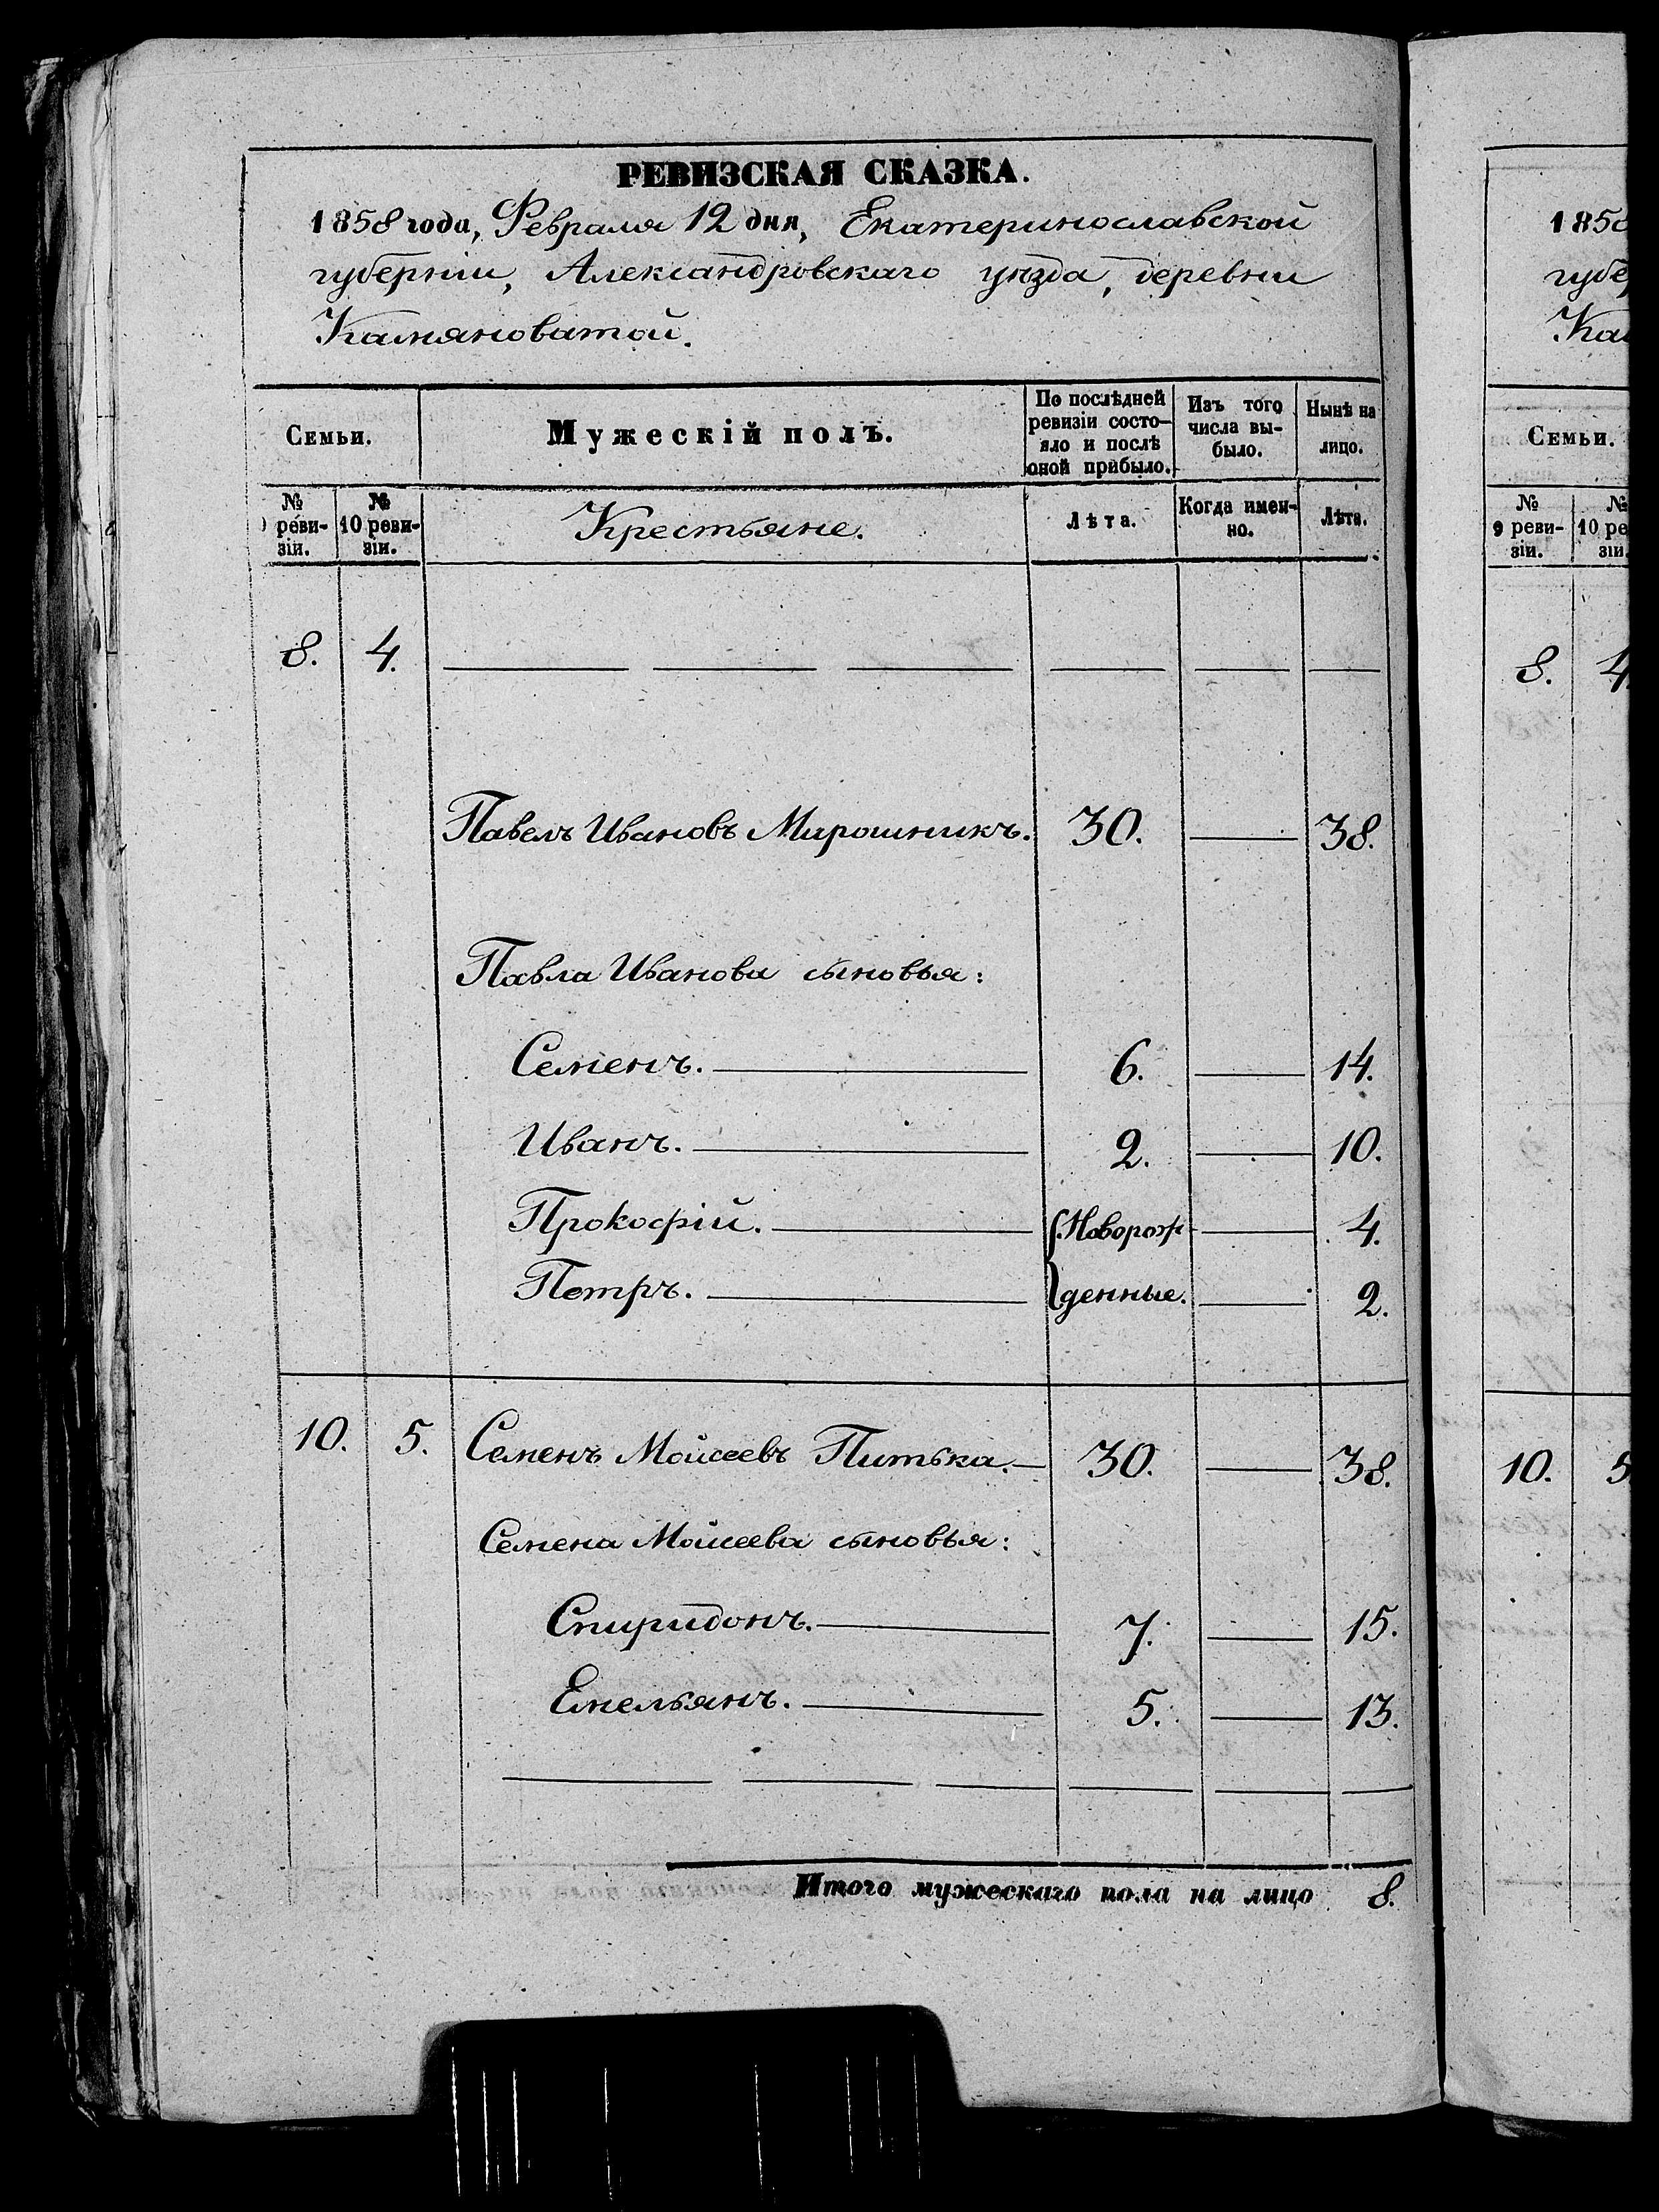 РЕВИЗСКАЯ СКАЗКА.
1858 года, Февраля 12 дня, Екатеринославской
губерніи, Александровскаго уѣзда, деревни
Камяноватой.
Семьи.
Мужескій полъ.
По послѣдней
ревизіи состо-
яло и послѣ
оной прибыло.
Изъ того
числа вы-
было.
Нынѣ на
лицо.
№
9 реви-
зіи.
№
10 реви-
зіи.
Крестьяне.
Лѣта.
Когда имен-
но.
Лѣта.
8. 4.
Павелъ Ивановъ Мирошникъ. 30. — 38.
Павла Иванова сыновья:
Семенъ. — 6. — 14.
Иванъ. — 2. — 10.
Прокофій. — Новорож — 4.
Петръ. — денные. — 2.
10. 5. Семенъ Мойсеевъ Питька. — 30. — 38.
Семена Мойсеева сыновья:
Спиридонъ. — 7. — 15.
Емельянъ. — 5. — 13.
Итого мужескаго пола на лицо 8.
185
губе
Ка
Семьи.
№
9 реви-
зіи.
№
10 ре
зіи.
8. 4
10. 5